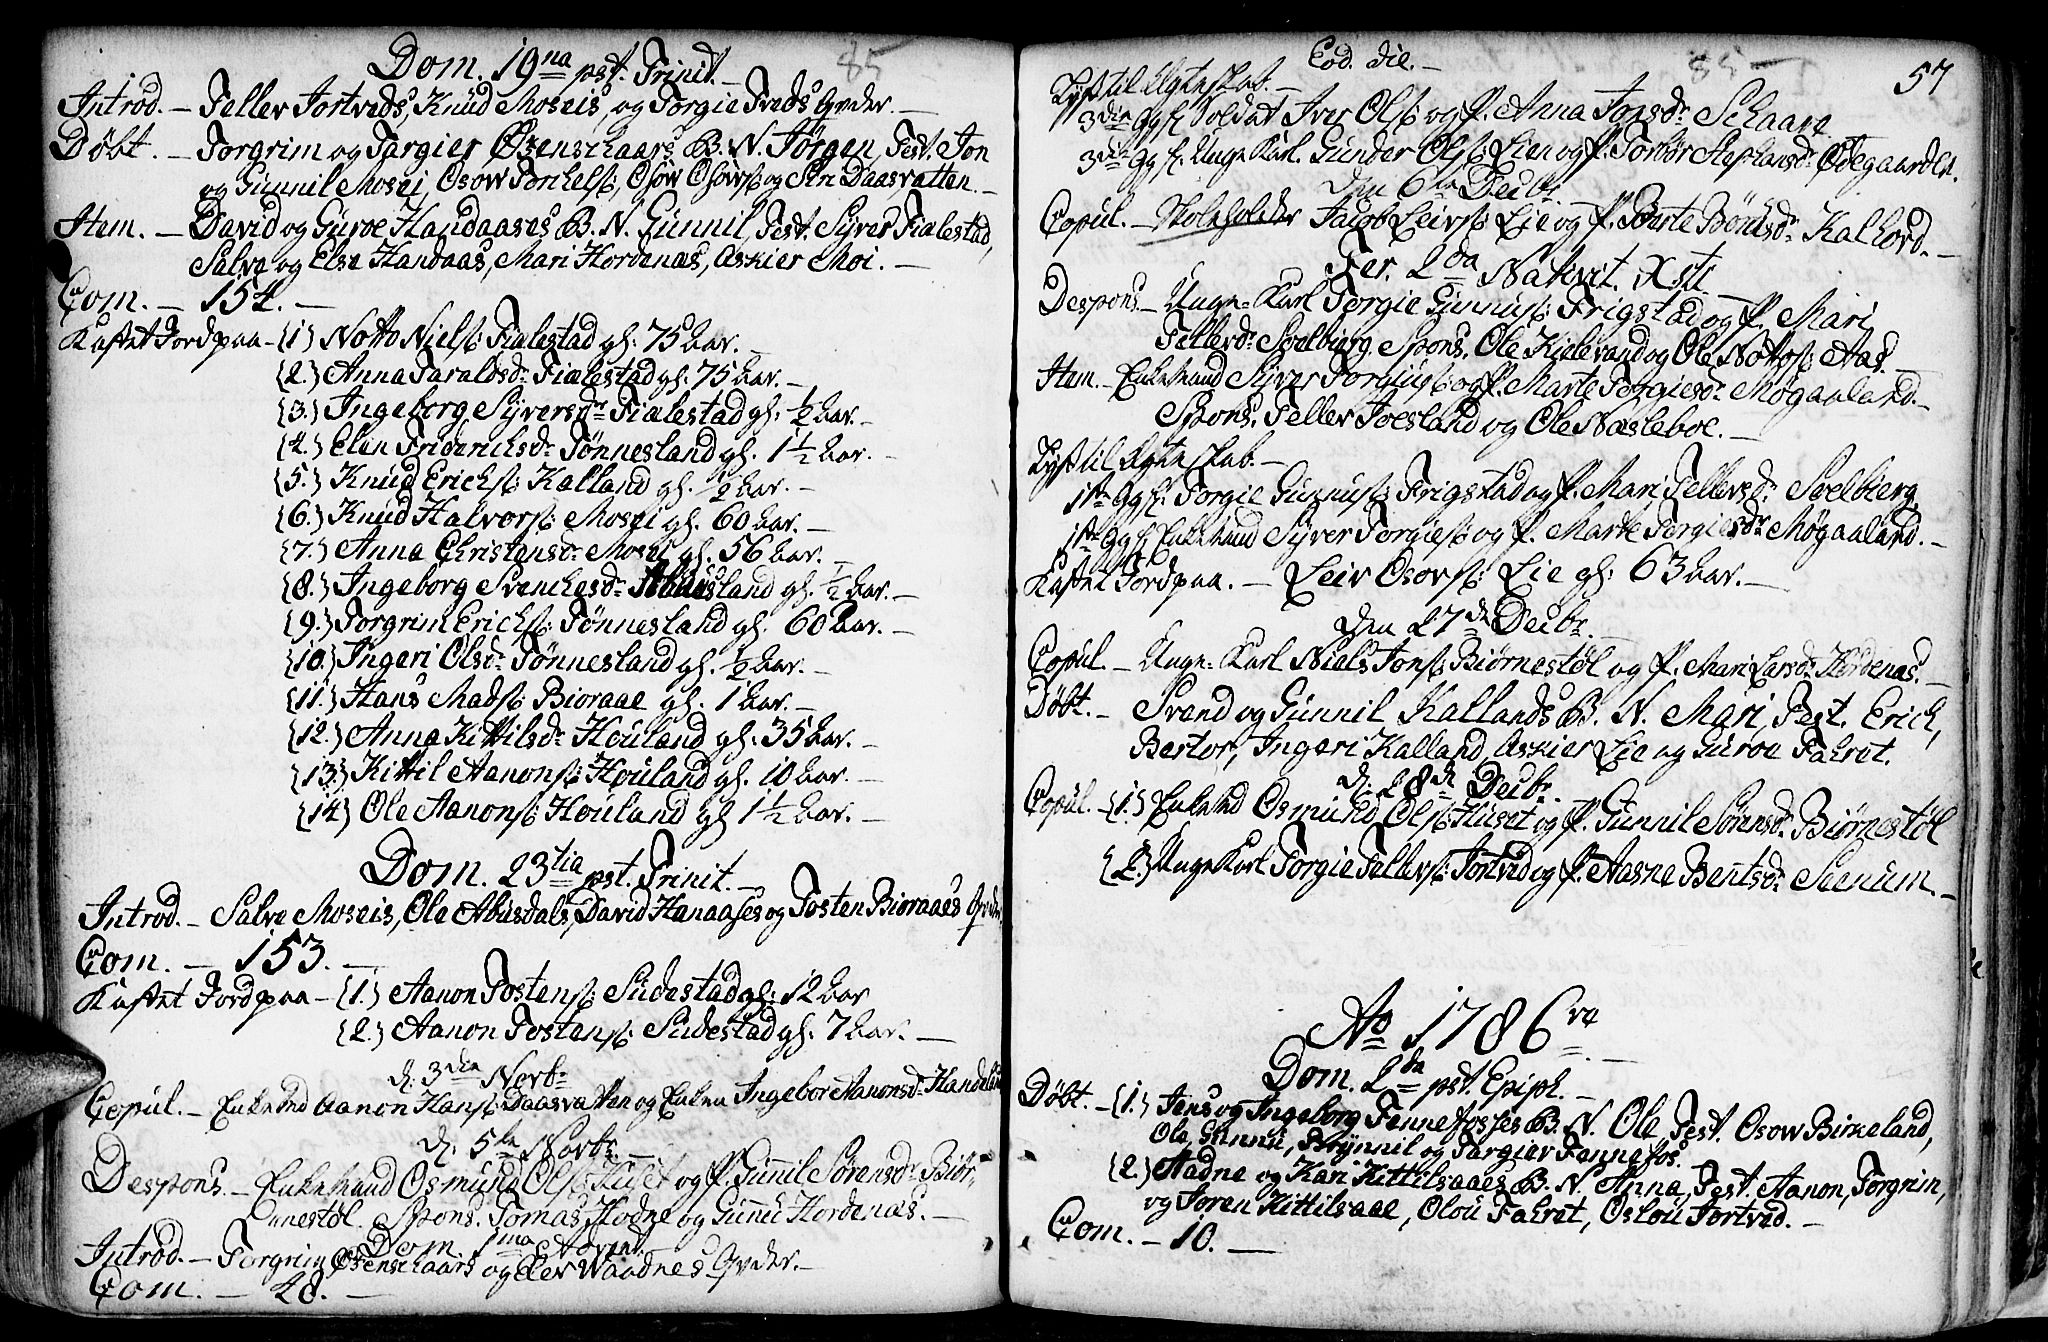 Dom. 19na pst. Trinit. 85
Introd. – Teller Tortveds, Knud Moseis, og Torgie Treds Qvder. –
Døbt. – Torgrim og Targier Øxenschaars B. N. Jørgen, Test. Jon
og Gunnil Mosei, Osow Torchels: Osow Osows: og Siri Daasvatten. –
Item. – David og Guroe Handaases B. N. Gunnil, Test. Syver Fialestad,
Salve og Else Handaas, Mari Hordenæs, Askier Moi. –
Com. – 154. –
Kastet Jord paa – {1) Notto Niels: Fialestad gl: 75 Aar. –
{2.) Anna Taraldsdr. Fialestad gl: 75 Aar. –
{3.) Ingeborg Syversdr. Fialestad gl: ½ Aar. –
{4.) Elen Friderichsdr. Tønnesland gl. 1½ Aar. –
{5.) Knud Erichs: Kalland gl. ½ Aar. –
{6.) Knud Halvors: Mosei gl. 60 Aar. –
{7.) Anna Christensdr. Mosei gl. 56 Aar. –
{8.) Ingeborg Svenchesdr. Abusland gl. ½ Aar. –
{9.) Torgrim Erichs: Tønnesland gl. 60 Aar. –
{10.) Ingeri Olsdr. Tønnesland gl. ½ Aar. –
{11.) Hans Mads: Bioraae gl. 1 Aar. –
{12.) Anna Kittilsdr. Houland gl. 35 Aar. –
{13.) Kittil Aanons: Houland gl. 10 Aar. –
{14) Ole Aanons: Houland gl 1½ Aar. –
Dom. 23tia pst. Trinit. –
Introd. – Salve Moseis, Ole Abusdals, David Hanaases og Tosten Bioraaes Qvder
Com. – 153. –
Kastet Jord paa – {1.) Aanon Tostens: Sudestad gl: 12 Aar
{2.) Aanon Tostens: Sudestad gl: 7 Aar. –
d: 3dia Novbr.
Copul. – Enkemd Aanon Hans: Daasvatten og Enken Ingebor Aanonsdr. Handeland
d. 5te Novbr. –
Despons. – Enkemand Osmund Ols: Huset og P. Gunnil Sørensdr. Biør-
nestøl. Spons. Tomas Hodne og Gunnu Hordenæs. –
Dom 1ma Advent.
Introd. – Torgrim Øxenschaars og Eer Waadnes Qvder. –
Com. – 48. –
Eod. die. – 85 – 57
Lyst til Ægteskab. –
3die Gg f. Soldat Iver Ols: og P. Anna Jonsdr. Schaare
3die Gg f. Unge Karl. Gunder Ols: Lien og P. Torbør Stephansdr. Ødegaarden.
den 6te Decbr.
Copul. – Skoleholder Jacob Leivs: Lie og P. Berte Børuldsdr. Kalhovd. –
Fer. 2da Nativit. Xsti.
Despons. – Unge-Karl Torgie Gunnus: Frigstad og P. Mari
Tellersdr. Soelbierg. Spons. Ole Kielevand og Ole Nottos: Aas. –
Item. – Enkemand Syver Torgius: og P. Marte Torgiesdr. Møgaaland. –
Spons. Teller Joesland og Ole Næsleboe. –
Lyst til Ægteskab. –
1ste Gg f. Torgie Gunnus: Frigstad og P. Mari Tellersdr. Soelbierg.
1ste Gg f. Enkemand Syver Torgies: og P. Marte Torgiesdr. Møgaaland. –
Kastet Jord paa. – Leiv Osovs: Lie gl: 63 Aar. –
den 27de Decbr.
Copul. – Unge-Karl Niels Jons: Biørnestøl og P. Mari Larsdr. Hordenæs. –
Døbt. – Svend og Gunnil Kallands B. N. Mari, Test. Erich,
Bertor, Ingeri Kalland, Askier Lie og Guroe Falret.
d. 28de Decbr.
Copul. – {1.) Enkemd Osmund Ols: Huset og P. Gunnil Sørensdr. Biørnestøl
{2.) Unge Karl Torgie Tellevs: Tortved og P. Aasne Bentsdr. Steenum. –
Ao 1786ve
Dom. 2da pst. Epiph. –
Døbt. – {1.) Jens og Ingeborg Fennefosses B. N. Ole, Test. Osow Birkeland,
Ole, Gunnu, Brynnil og Targier Fannefos.
{2.) Aadne og Kari Kittilsaaes B. N. Anna, Test. Aanon, Torgrim,
og Joren Kittilsaae, Olou Falret, Oslou Tortved. –
Com. – 10. –